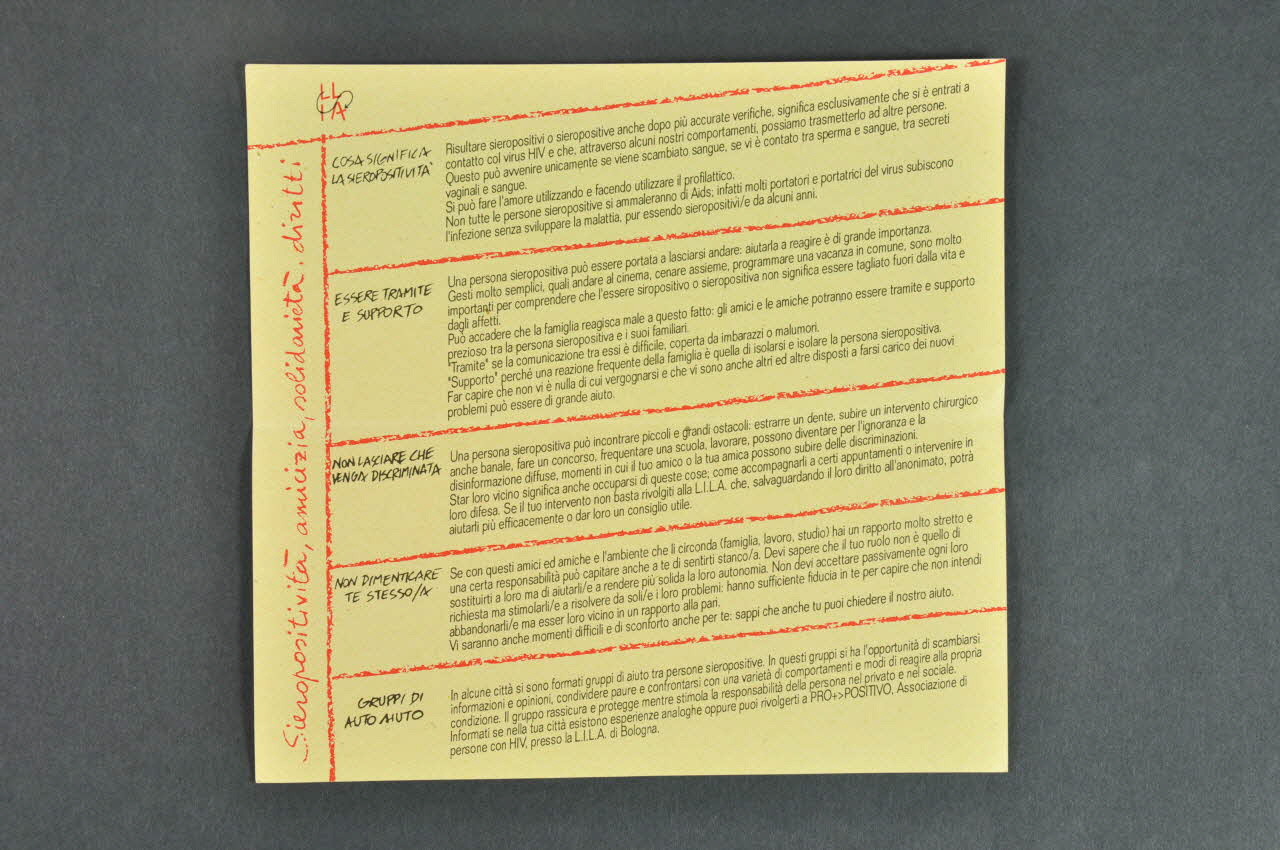 LILA
Sieropositività, amicizia, solidarietà. diritti
COSA SIGNIFICA
LA SIEROPOSITIVITA'
Risultare sieropositivi o sieropositive anche dopo più accurate verifiche, significa esclusivamente che si è entrati a
contatto col virus HIV e che, attraverso alcuni nostri comportamenti, possiamo trasmetterlo ad altre persone.
Questo può avvenire unicamente se viene scambiato sangue, se vi è contato tra sperma e sangue, tra secreti
vaginali e sangue.
Si può fare l'amore utilizzando e facendo utilizzare il profilattico.
Non tutte le persone sieropositive si ammaleranno di Aids; infatti molti portatori e portatrici del virus subiscono
l'infezione senza sviluppare la malattia, pur essendo sieropositivi/e da alcuni anni.
ESSERE TRAMITE
E SUPPORTO
Una persona sieropositiva può essere portata a lasciarsi andare: aiutarla a reagire è di grande importanza.
Gesti molto semplici, quali andare al cinema, cenare assieme, programmare una vacanza in comune, sono molto
importanti per comprendere che l'essere siropositivo o sieropositiva non significa essere tagliato fuori dalla vita e
dagli affetti.
Può accadere che la famiglia reagisca male a questo fatto: gli amici e le amiche potranno essere tramite e supporto
prezioso tra la persona sieropositiva e i suoi familiari.
"Tramite" se la comunicazione tra essi è difficile, coperta da imbarazzi o malumori.
"Supporto" perché una reazione frequente della famiglia è quella di isolarsi e isolare la persona sieropositiva.
Far capire che non vi è nulla di cui vergognarsi e che vi sono anche altri ed altre disposti a farsi carico dei nuovi
problemi può essere di grande aiuto.
NON LASCIARE CHE
VENGA DISCRIMINATA
Una persona sieropositiva può incontrare piccoli e grandi ostacoli: estrarre un dente, subire un intervento chirurgico
anche banale, fare un concorso, frequentare una scuola, lavorare, possono diventare per l'ignoranza e la
disinformazione diffuse, momenti in cui il tuo amico o la tua amica possono subire delle discriminazioni.
Star loro vicino significa anche occuparsi di queste cose; come accompagnarli a certi appuntamenti o intervenire in
loro difesa. Se il tuo intervento non basta rivolgiti alla L.I.L.A. che, salvaguardando il loro diritto all'anonimato, potrà
aiutarli più efficacemente o dar loro un consiglio utile.
NON DIMENTICARE
TE STESSO/A
Se con questi amici ed amiche e l'ambiente che li circonda (famiglia, lavoro, studio) hai un rapporto molto stretto e
una certa responsabilità può capitare anche a te di sentirti stanco/a. Devi sapere che il tuo ruolo non è quello di
sostituirti a loro ma di aiutarli/e a rendere più solida la loro autonomia. Non devi accettare passivamente ogni loro
richiesta ma stimolarli/e a risolvere da soli/e i loro problemi: hanno sufficiente fiducia in te per capire che non intendi
abbandonarli/e ma esser loro vicino in un rapporto alla pari.
Vi saranno anche momenti difficili e di sconforto anche per te: sappi che anche tu puoi chiedere il nostro aiuto.
GRUPPI DI
AUTO AIUTO
In alcune città si sono formati gruppi di aiuto tra persone sieropositive. In questi gruppi si ha l'opportunità di scambiarsi
informazioni e opinioni, condividere paure e confrontarsi con una varietà di comportamenti e modi di reagire alla propria
condizione. Il gruppo rassicura e protegge mentre stimola la responsabilità della persona nel privato e nel sociale.
Informati se nella tua città esistono esperienze analoghe oppure puoi rivolgerti a PRO+>POSITIVO, Associazione di
persone con HIV, presso la L.I.L.A. di Bologna.